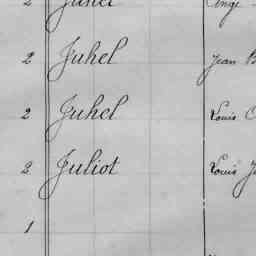 2 Juhel Ange
2 Juhel Jean B
2 Juhel Louis C
2 Juliot Louis J
1